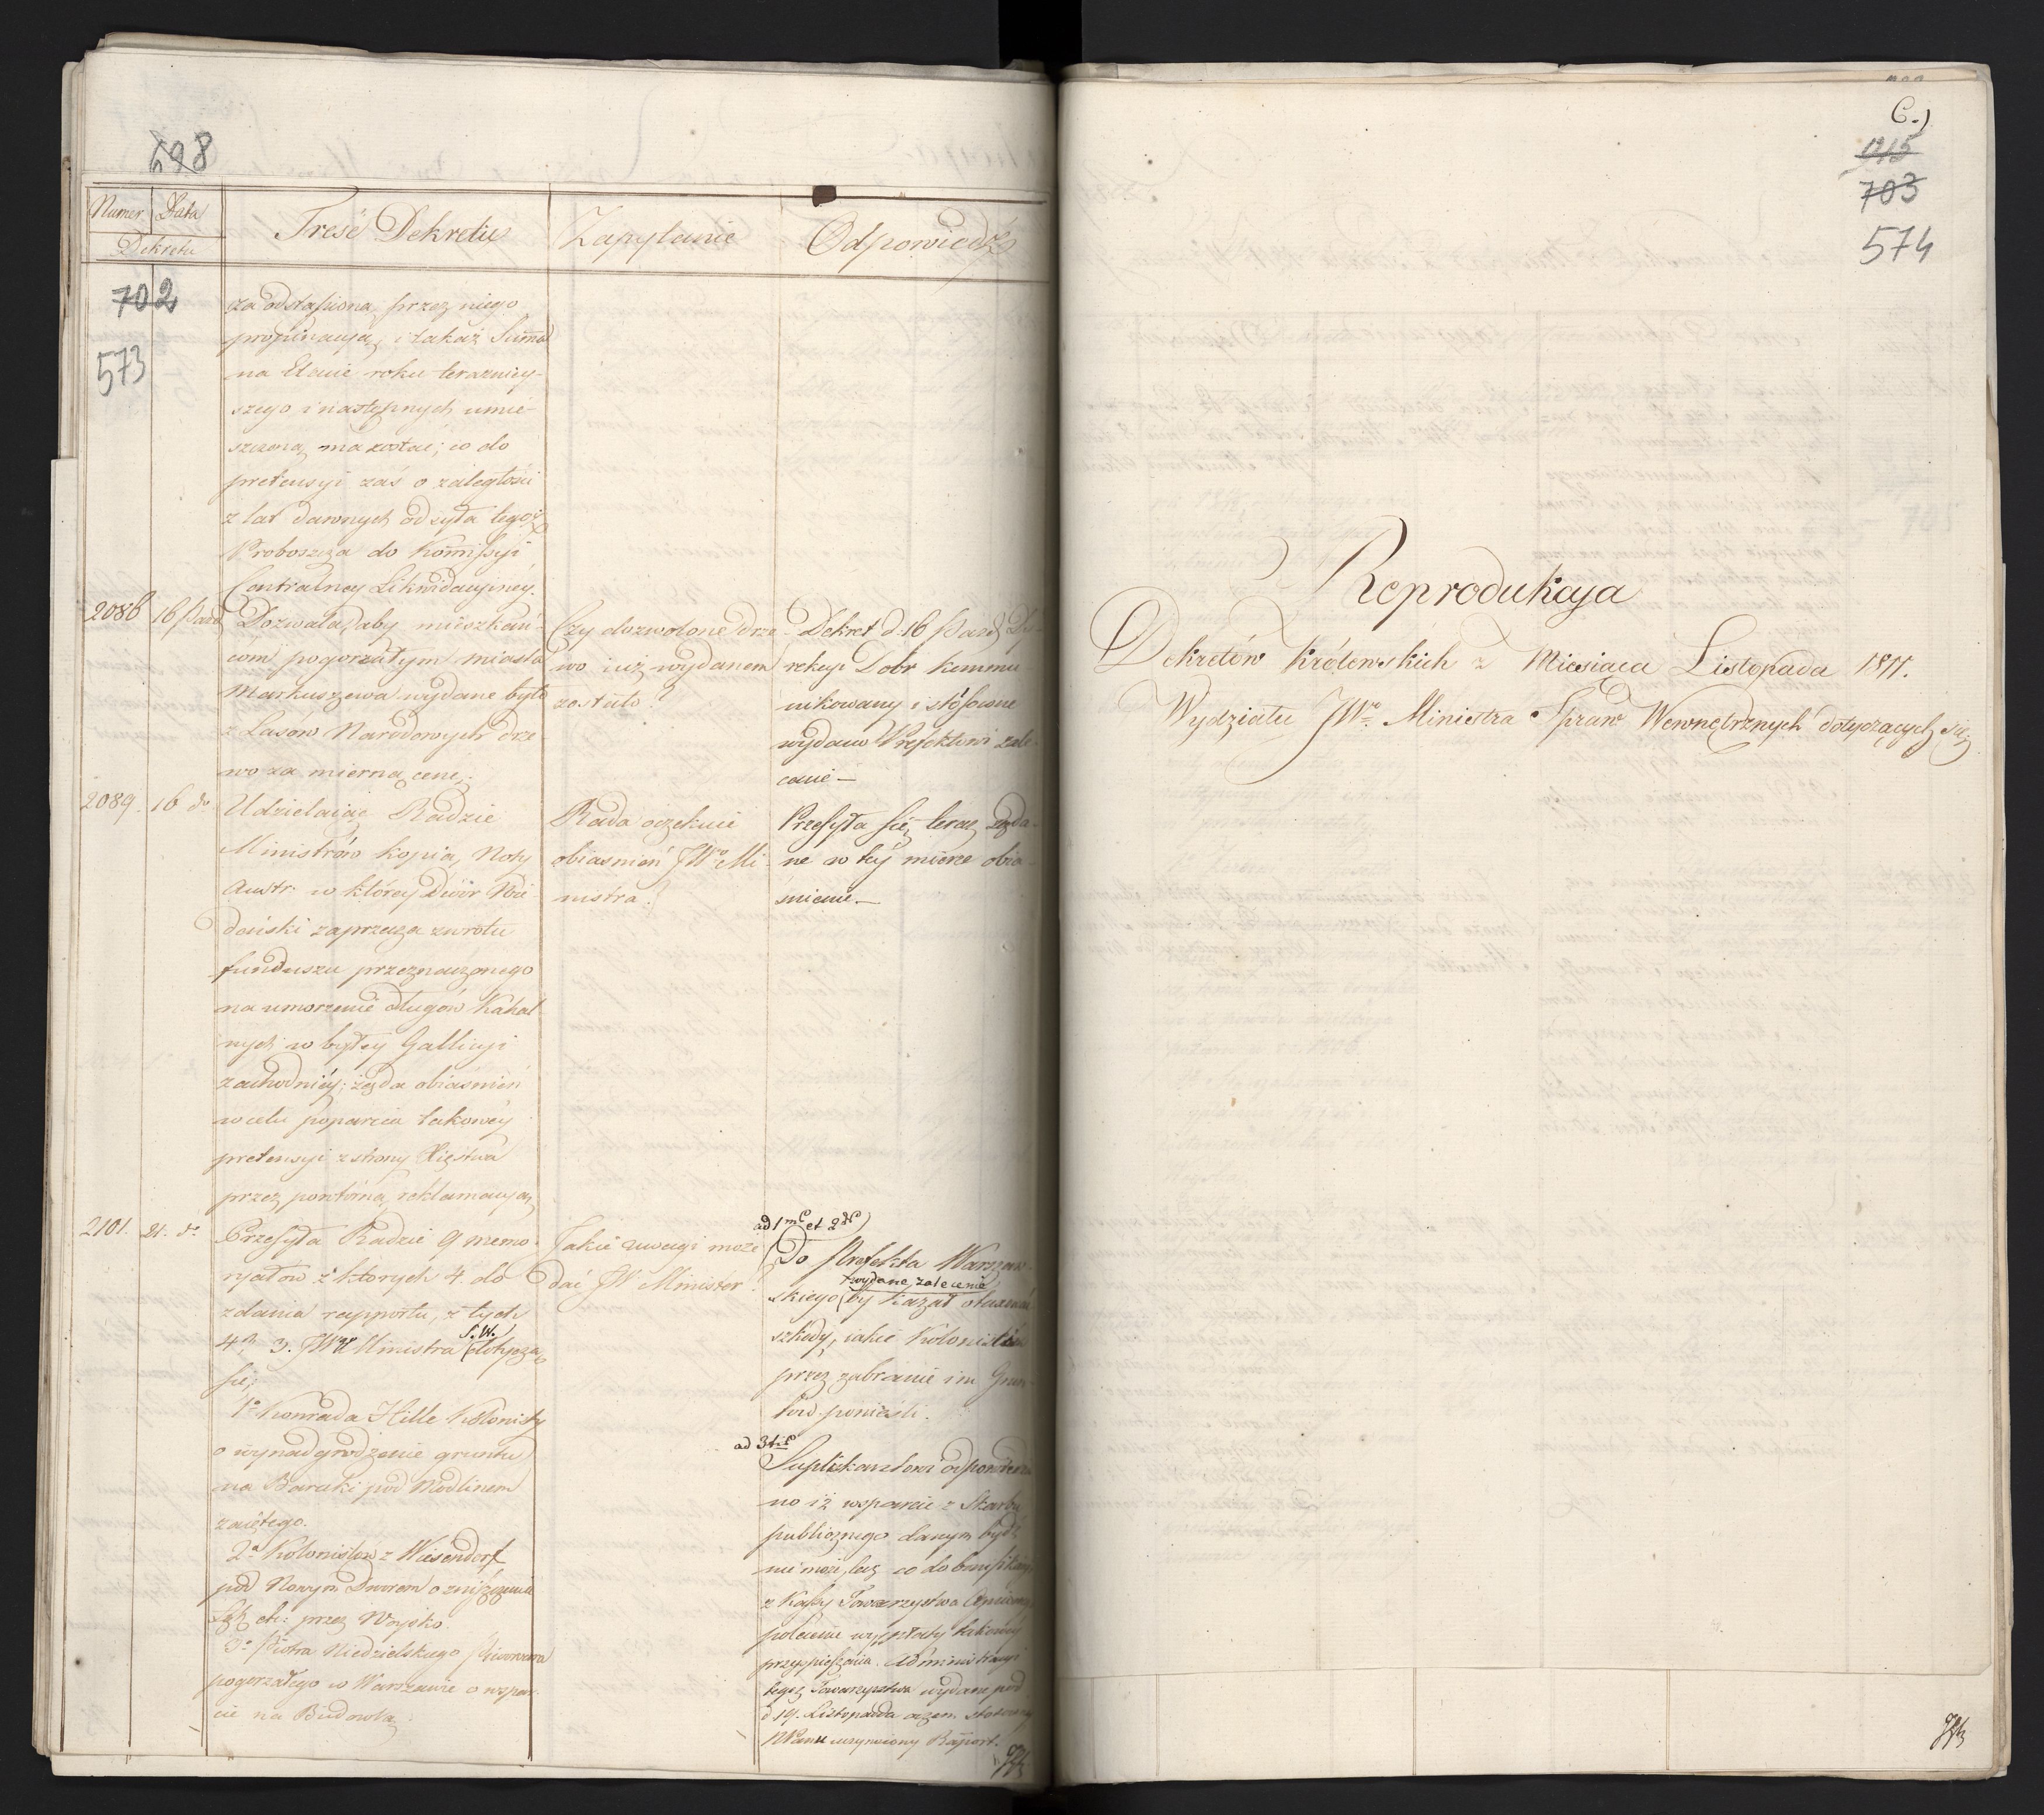 698
Numer Data
Dekretu
Treść Dekretu
Zapytanie
Odpowiedź
702
573
za odstąpioną przez niego
propinacyą, i takaż Summa
na Etacie roku terazniey-
szego i następnych umie-
szczoną ma zostać; co do
pretensyi zaś o zaległości
z lat dawnych odsyła tegoż
Proboszcza do Kommissyi
Centralney Likwidacyiney.
2086 16 Paźd
Dozwala, aby mieszkań-
com pogorzałym miasta
Markuszewa wydane było
z Lasów Narodowych drze-
wo za mierną cenę.
Czy dozwolone drze-
wo już wydanem
zostało?
Dekret d. 16 Paźd. Dy-
rekcyi Dobr kommu-
nikowany i stósowne
wydano Prefektowi zale-
cenie —
2089. 16 do
Udzielaiąc Radzie
Ministrów kopią Noty
Austr: w którey Dwór Wie-
deński zaprzecza zwrotu
funduszu przeznaczonego
na umorzenie długów Kahal
nych w byłey Gallicyi
zachodniéy; żąda obiasnień
w celu poparcia takowéy
pretensyi z strony Xięstwa
przez powtórną reklamacyą
Rada oczekuie
obiasnień JWo Mi-
nistra?
Przesyła się teraz żąda-
ne w téy mierze obia-
śnienie —
2101. 21. do
Przesyła Radzie 9 memo-
ryałów z których 4. do
zdania rapportu, z tych
S.W.
4ch 3. JWgo Ministra dotyczą
się;
1o Konrada Hille Kolonisty
o wynadgrodzenie gruntu
na Baraki pod Modlinem
zaiętego.
2o Kolonistów z Wiesendorf
pod Nowym Dworem o zniszczenie
Łąk etc: przez Woysko.
3o Piotra Niedzielskiego Piwowara
pogorzałego w Warszawie o wspar-
cie na Budowlą.
Jakie uwagi może
dać JW Minister?
ad 1mo et 2do)
Do Prefekta Warszaw-
wydane zalecenie
skiego by kazał otaxować
szkody, iakie Koloniści
przez zabranie im Grun-
tów ponieśli.
ad 3tio
Suplikantowi odpowiedzia
no iż wsparcie z Skarbu
publicznego danym bydź
nie może, lecz co do bonifikacyi
z Kassy Towarzystwa Ogniowego
polecenie wypłaty takowey
przyspieszenia Administracyi
tegoż Towarzystwa wydane pod
d 19. Listopada o czem stosowny
NPanu uczyniony Raport.
C.)
1715
703
574
Reprodukcya
Dekretów Królewskich z Miesiąca Listopada 1811.
Wydziału JWo Ministra Spraw Wewnętrznych dotyczących się